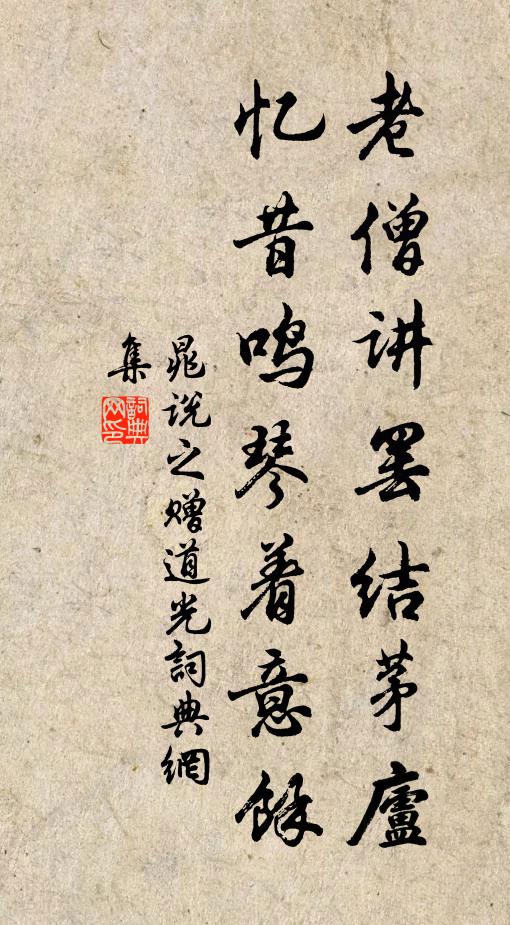 老僧讲罢结茅廬
忆昔鸣琴着意餘
晁说之赠道光詞典網
集
詞典網印